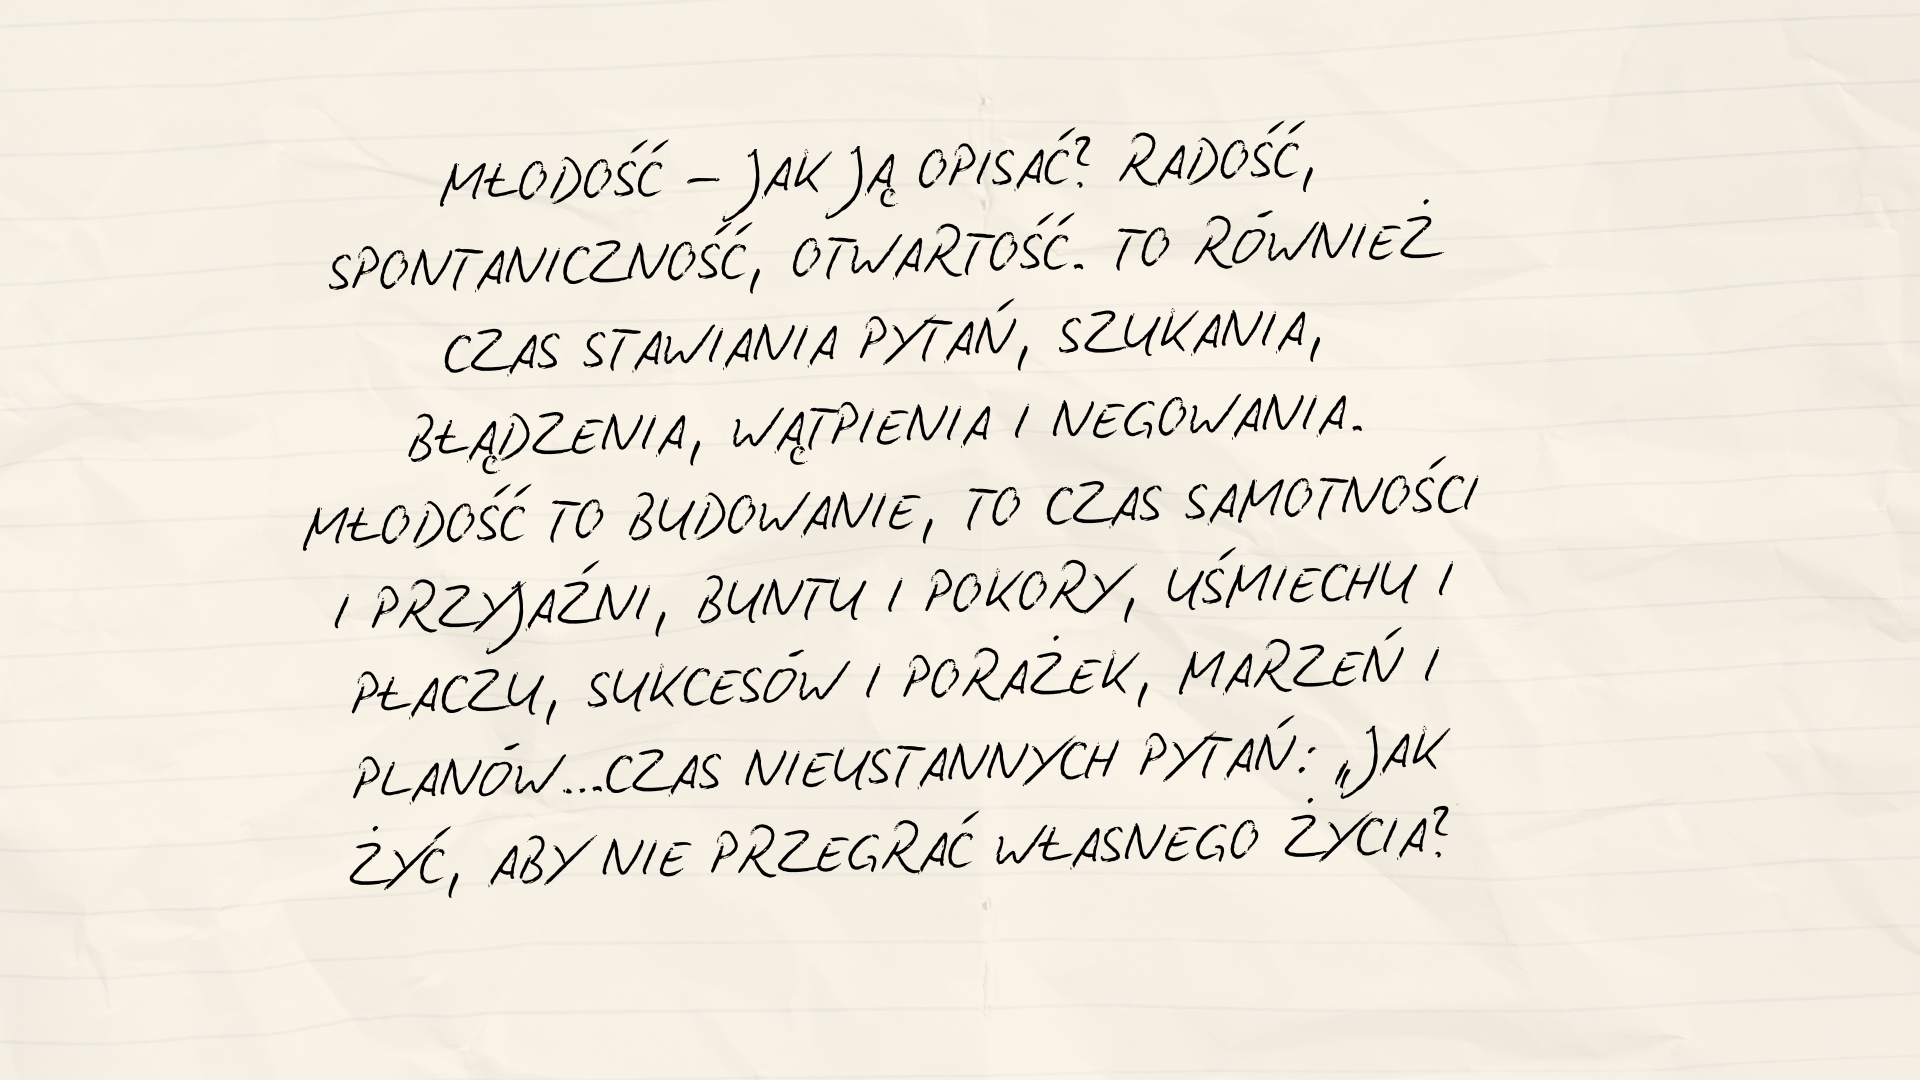 MŁODOŚĆ – JAK JĄ OPISAĆ? RADOŚĆ,
SPONTANICZNOŚĆ, OTWARTOŚĆ. TO RÓWNIEŻ
CZAS STAWIANIA PYTAŃ, SZUKANIA,
BŁĄDZENIA, WĄTPIENIA I NEGOWANIA.
MŁODOŚĆ TO BUDOWANIE, TO CZAS SAMOTNOŚCI
I PRZYJAŹNI, BUNTU I POKORY, UŚMIECHU I
PŁACZU, SUKCESÓW I PORAŻEK, MARZEŃ I
PLANÓW...CZAS NIEUSTANNYCH PYTAŃ: „JAK
ŻYĆ, ABY NIE PRZEGRAĆ WŁASNEGO ŻYCIA?